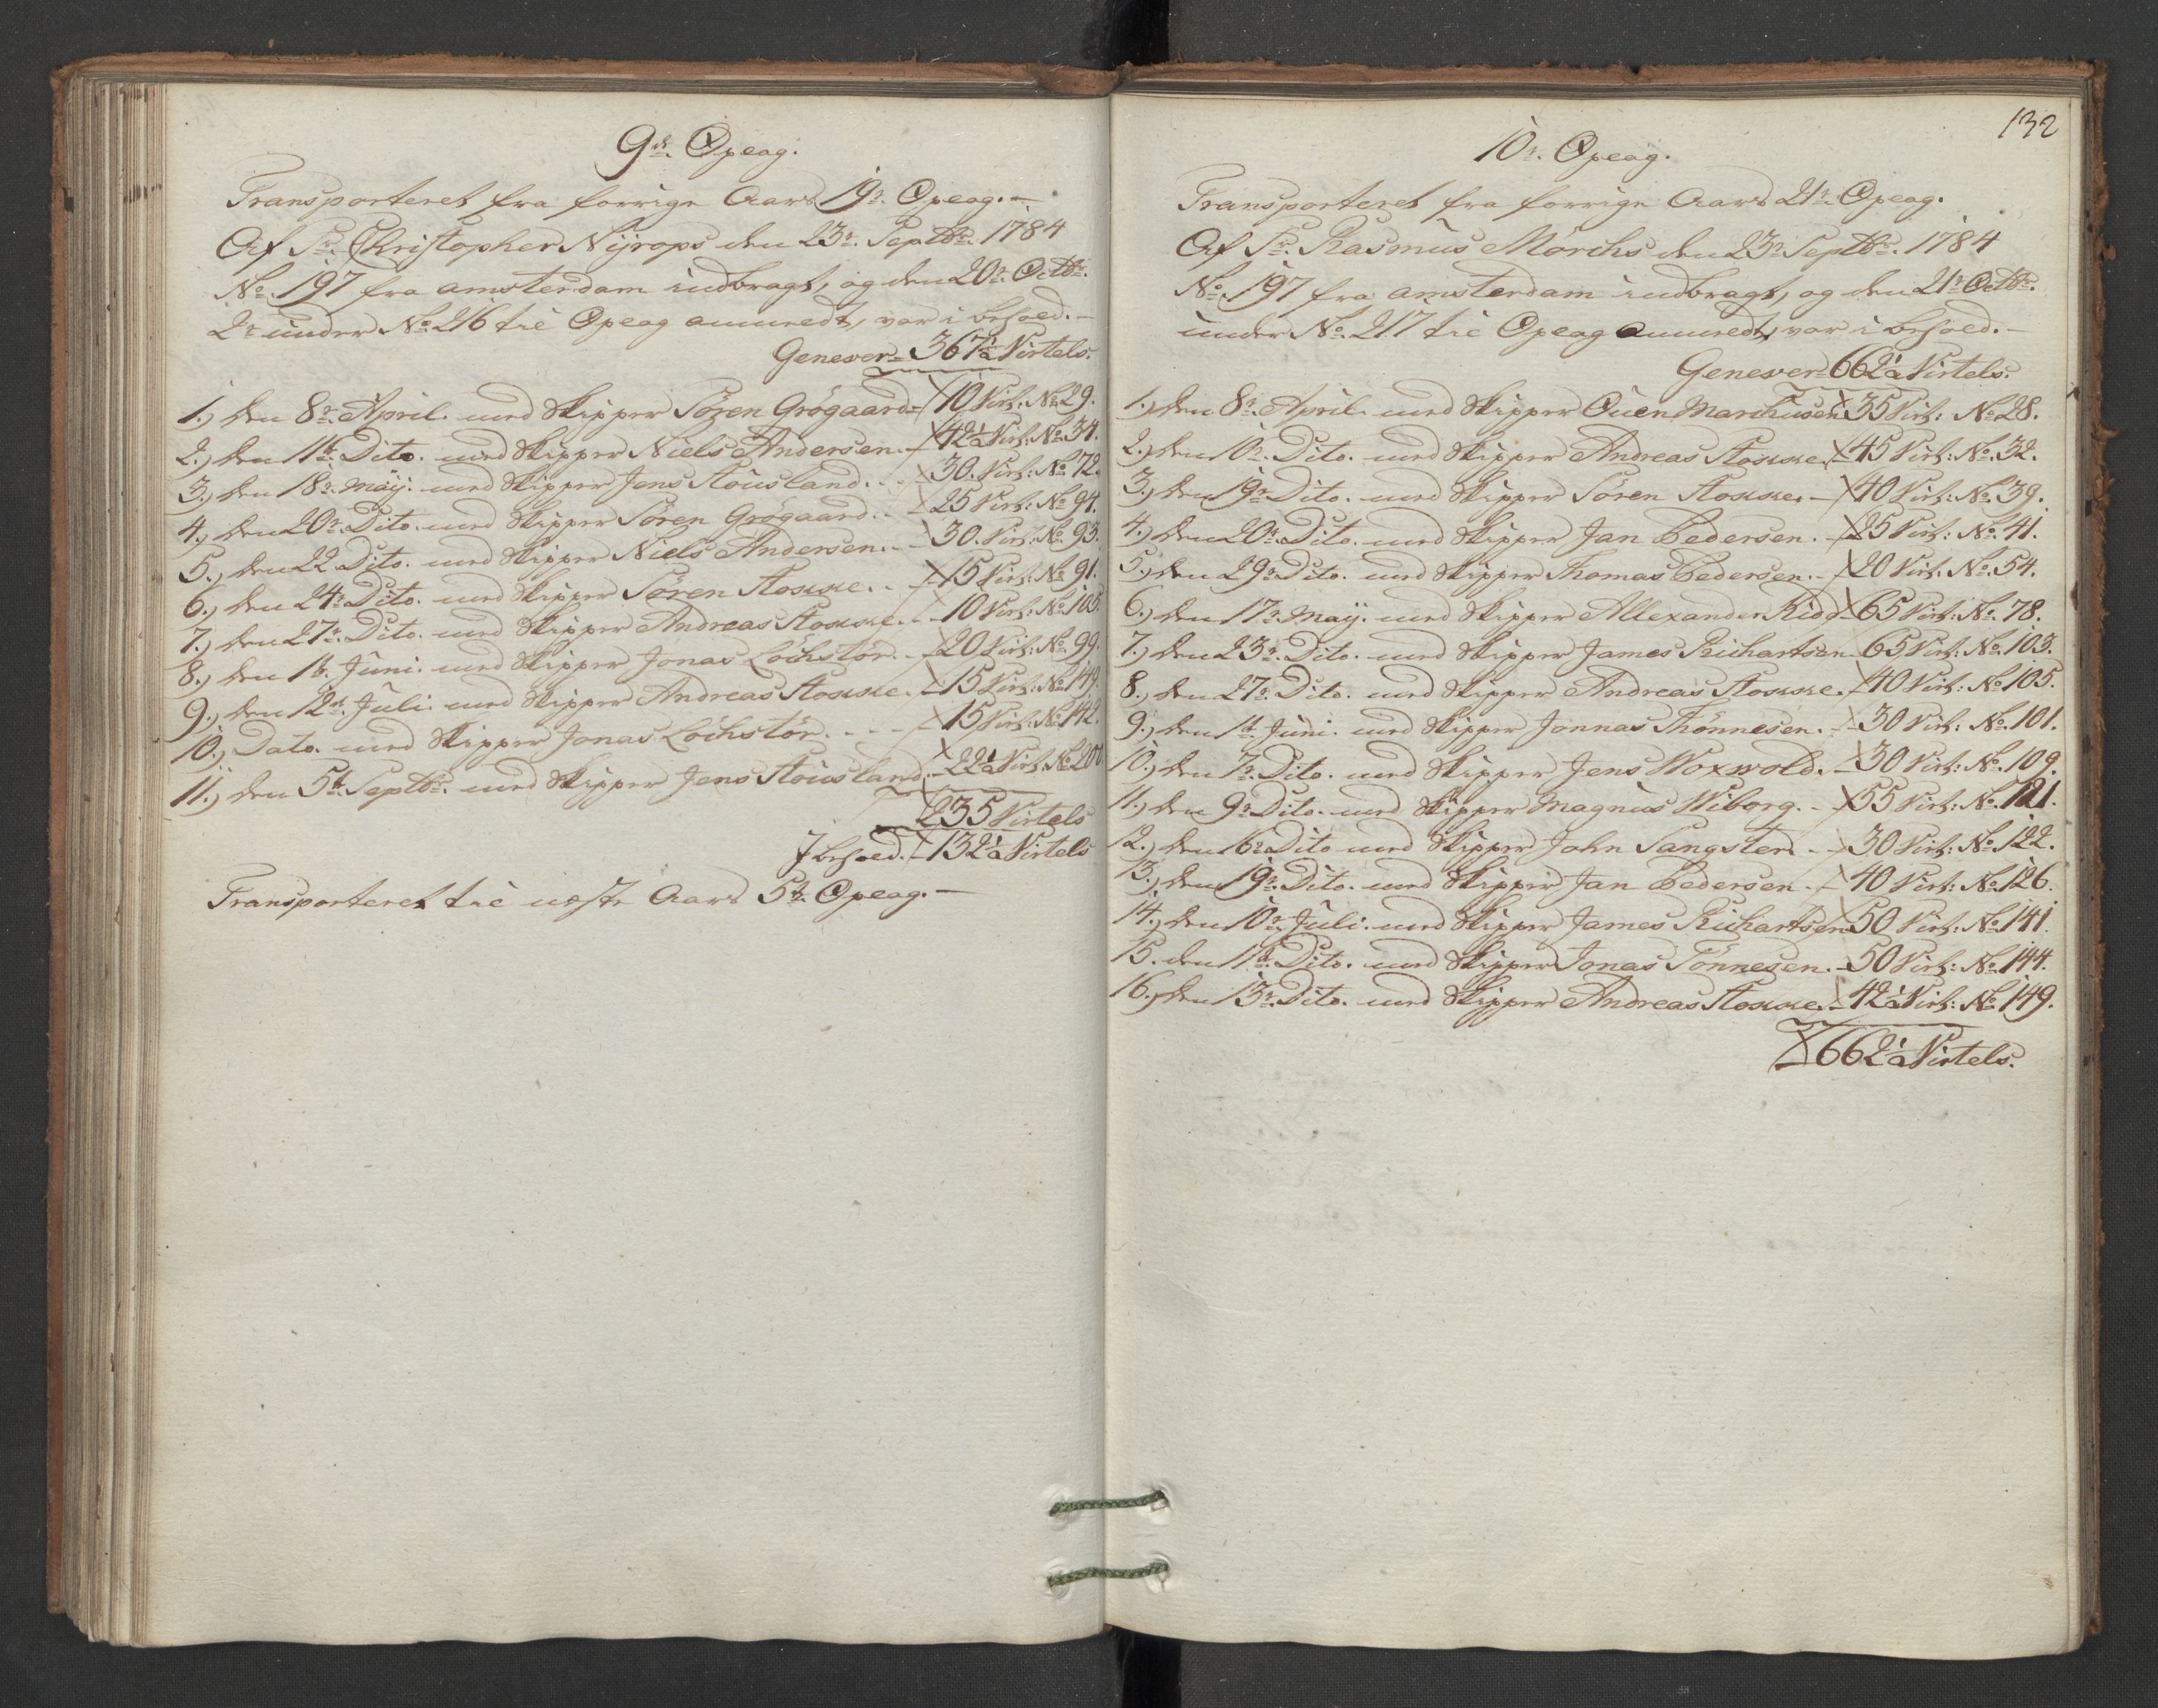 9de Oplag.
Transporteret fra forrige Aars 19r. Oplag. —
Af Sr. Christopher Nÿrops den 23r. Septbr. 1784
No. 197 fra amsterdam indbragt, og den 20r. Octbr.
under No. 216 til Oplag anmeldt, var i behold. —
Genever = 367½ Virtels.
1.) den 8r. April. med Skipper Sören Grögaard = 10 Virt: No. 29.
2.) den 11te. Dito. med Skipper Niels Andersen. — 42½ Virt: No. 34.
3.) den 18r. Maÿ. med Skipper Jens Stousland. — 30. Virt: No. 72.
4.) den 20r. Dito. med Skipper Sören Grögaard. — 25 Virt: No. 94.
5.) den 22 Dito. med Skipper Niels Andersen. — 30. Virt: No. 93.
6.) den 24r. Dito. med Skipper Sören Stokke. — 15 Virt: No. 91.
7.) den 27r. Dito. med Skipper Andreas Stokke. — 10 Virt: No. 105.
8.) den 1te. Juni. med Skipper Jonas Löchstör. — 20 Virt: No. 99.
9.) den 12te. Juli. med Skipper Andreas Stokke. — 15 Virt: No. 149.
10.) Dato. med Skipper Jonas Löchstör. — 15 Virt: No. 142.
11.) den 5te. Septbr. med Skipper Jens Stousland. — 22½ Virt: No.
235 Virtels
J behold. — 132½ Virtels
Transporteret til næste Aars 5te. Oplag. —
132
10r. Oplag.
Transporteret fra forrige Aars 21r. Oplag.
Af Sr. Rasmus Mörchs den 23r. Septbr. 1784
No. 197 fra amsterdam indbragt, og den 21r. Octbr.
under No. 217 til Oplag anmeldt, var i behold. —
Genever = 662½ Virtels.
1.) den 8r. April. med Skipper Ouen Marchusen 35 Virt: No. 28.
2.) den 10r. Dito. med Skipper Andreas Stokke. — 45 Virt: No. 32.
3.) den 19r. Dito. med Skipper Sören Stokke. — 40 Virt: No. 39.
4.) den 20r. Dito. med Skipper Jan Pedersen. — 25 Virt: No. 41.
5.) den 29r. Dito. med Skipper Thomas Pedersen. — 20 Virt: No. 54.
6.) den 17r. Maÿ. med Skipper Allexander Kidd — 65 Virt: No. 78.
7.) den 23r. Dito. med Skipper James Richartsen — 65 Virt: No. 103.
8.) den 27r. Dito. med Skipper Andreas Stokke. — 40 Virt: No. 105.
9.) den 1te. Juni. med Skipper Jonnas Thönnesen. — 30 Virt: No. 101.
10.) den 7r. Dito. med Skipper Jens Woxwold. — 30 Virt: No. 109.
11.) den 9r. Dito. med Skipper Magnus Wiborg. — 55 Virt: No. 121.
12.) den 16r. Dito med Skipper John Sangster. — 30 Virt: No. 122.
13.) den 19r. Dito. med Skipper Jan Pedersen. — 40 Virt: No. 126.
14.) den 10r. Juli. med Skipper James Richartsen 50 Virt: No. 141.
15. den 11te. Dito. med Skipper Jonas Tönnesen. — 50 Virt: No. 144.
16.) den 13r. Dito. med Skipper Andreas Stokke. — 42½ Virt: No. 149.
662½ Virtels.